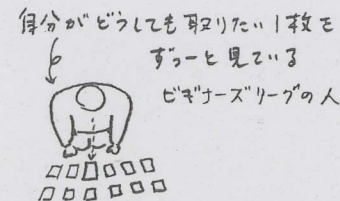 自分がどうしても取りたい1枚を
ずっーと見ている
ビギナーズリーグの人